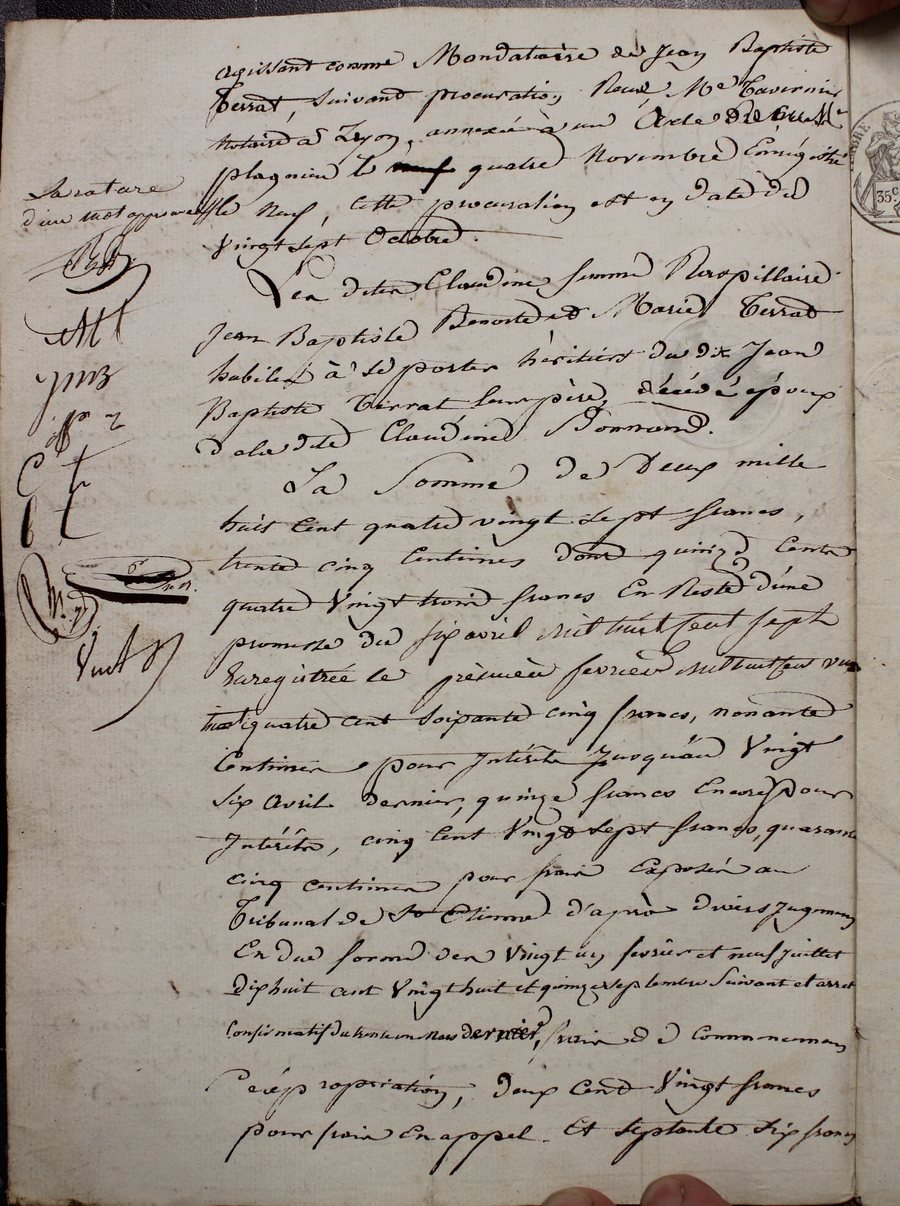 agissant comme Mandataire de Jean Baptiste
Terrat, suivant procuration Reçue Me Tavernier
notaire à Lyon, annexée à un Acte Me
plagnieu le quatre novembre Enregistré
le neuf, cette procuration est en date du
Vingt sept Octobre.
La rature
d'un mot approuvée
Les dites Claudine femme
Jean Baptiste Benoite et Marie Terrat
habiles à se porter héritiers du dit Jean
Baptiste Terrat leur père, décédé époux
de la dite Claudine Bonnand.
La Somme de Deux mille
huit cent quatre vingt sept francs,
trente cinq Centimes dont quinze Cents
quatre Vingt trois francs En Reste d'une
promesse du six avril mil huit cent sept
Enregistrée le premier fevrier mil huit cent
quatre cent soixante cinq francs, nonante
Centimes pour Intérêts Jusqu'au Vingt
six avril dernier, quinze francs Encore pour
Intérêts, cinq Cent Vingt sept francs, quarante
cinq centimes pour frais Exposés au
Tribunal de St Etienne d'après divers Jugemens
En due forme des Vingt un fevrier et neuf Juillet
dix huit cent Vingt huit et quinze septembre Suivant et arret
Confirmatif du trente un Mars dernier, frais de Commandement
expropriation, deux Cent Vingt francs
pour frais En appel. Et septante six francs
35 c